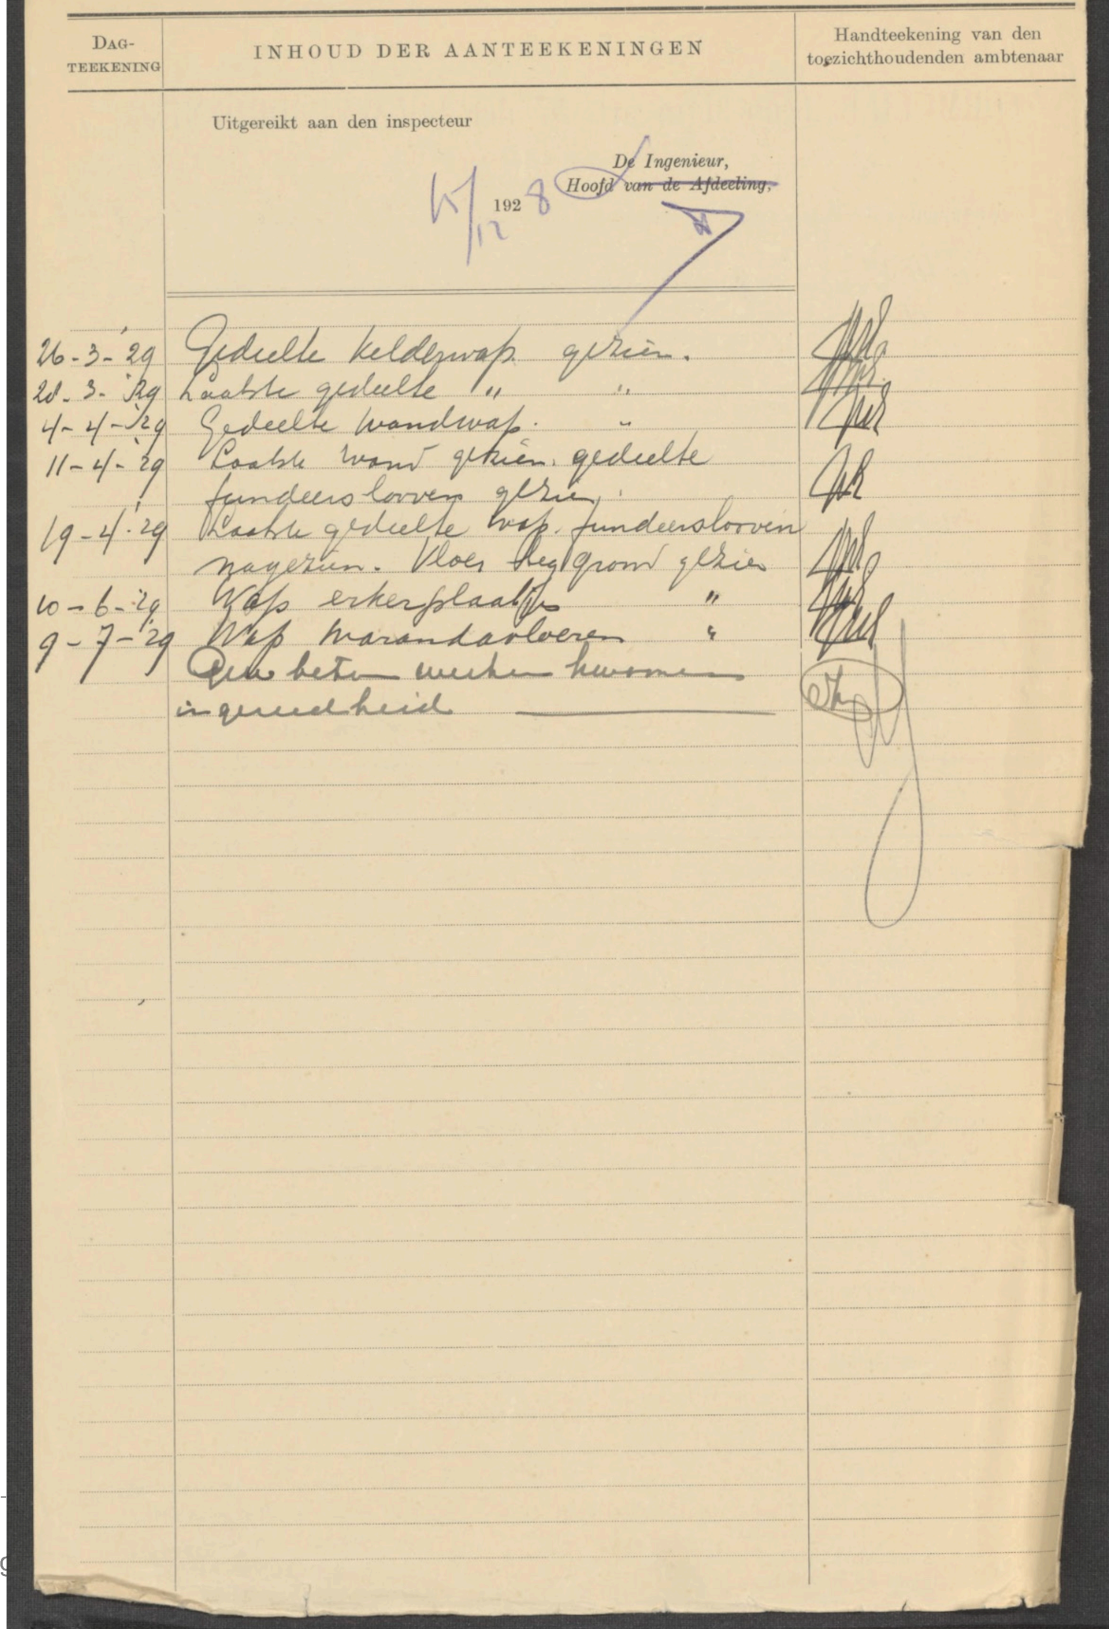 DAG-
TEEKENING
INHOUD DER AANTEEKENINGEN
Handteekening van den
toezichthoudenden ambtenaar
Uitgereikt aan den inspecteur
De Ingenieur,
Hoofd van de Afdeeling,
15/12 1928
26-3-'29 Gedeelte kelderwap. gezien.
28-3-'29 Laatste gedeelte " "
4-4-'29 Gedeelte wandwap. "
11-4-'29 Laatste wand gezien. gedeelte
fundeerslooven gezien.
19-4-'29 Laatste gedeelte wap. fundeerslooven
nagezien. Vloer beg grond gezien
10-6-'29 Wap erkerplaatjes "
9-7-'29 Wap warandavloeren "
beton werken kwamen
in gereedheid